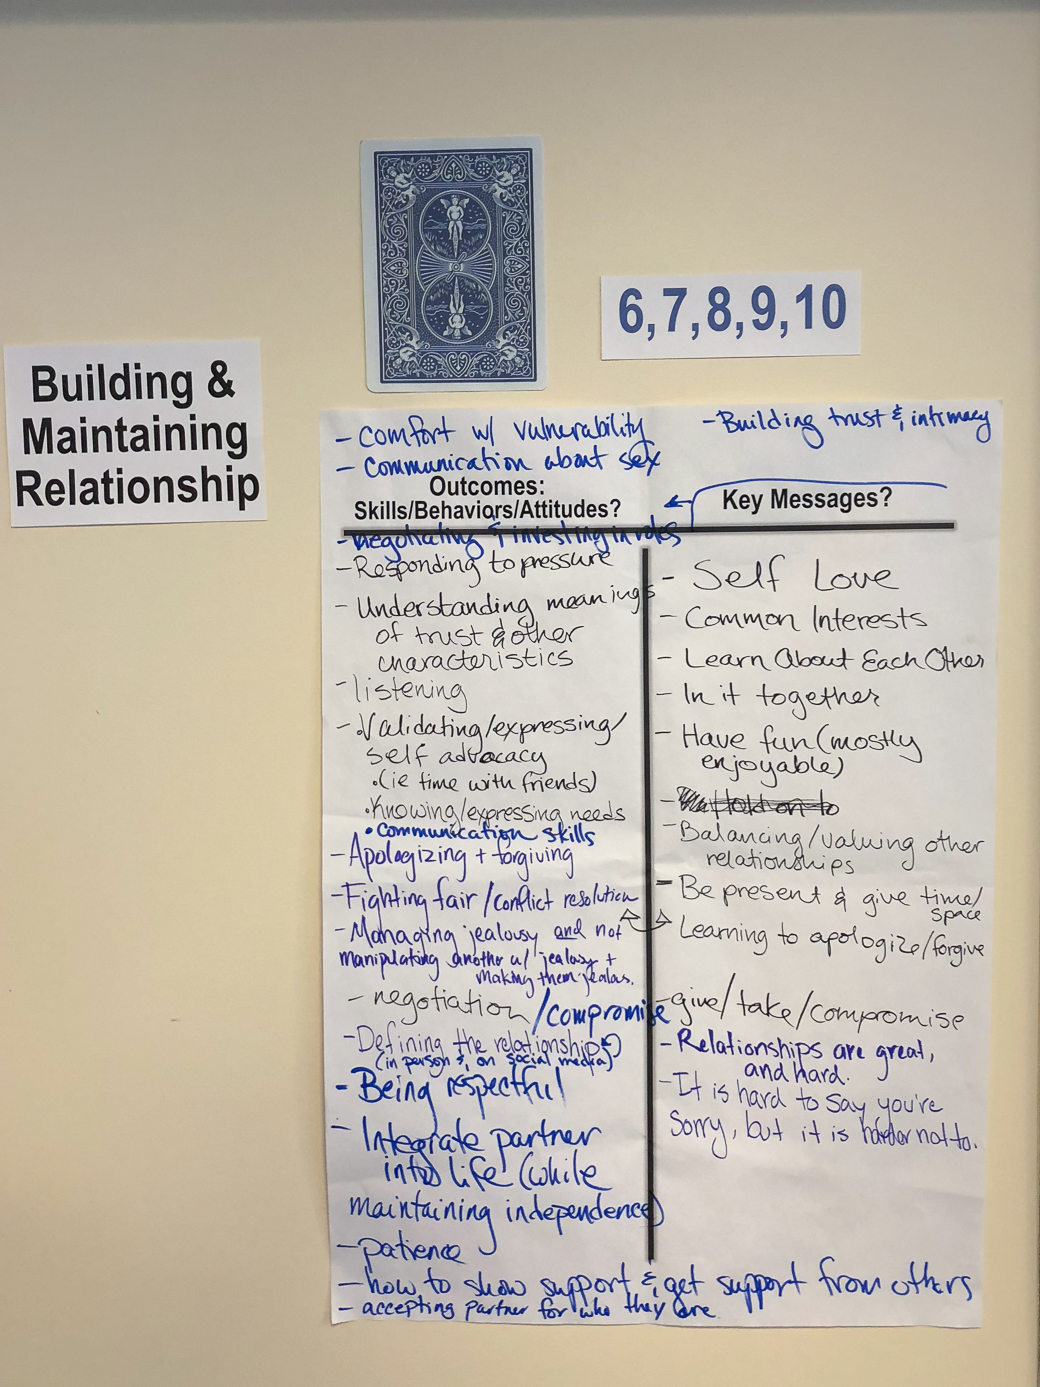 6,7,8,9,10
Building &
Maintaining
Relationship
- Comfort w/ vulnerability
- Communication about sex
- Building trust & intimacy
Outcomes:
Skills/Behaviors/Attitudes?
- negotiating & investing in roles
- Responding to pressure
- Understanding meanings
of trust & other
characteristics
- listening
- Validating/expressing/
self advocacy
• (ie time with friends)
• Knowing/expressing needs
• Communication skills
- Apologizing + forgiving
- Fighting fair/conflict resolution
- Managing jealousy and not
manipulating another w/ jealousy +
making them jealous.
- negotiation/compromise
- Defining the relationship
(in person &, on social media)
- Being respectful
- Integrate partner
into life (while
maintaining independence)
- patience
- how to show support & get support from others
- accepting partner for who they are
Key Messages?
- Self Love
- Common Interests
- Learn About Each Other
- In it together
- Have fun (mostly
enjoyable)
- Balancing/valuing other
relationships
- Be present & give time/
space
Learning to apologize/forgive
- give/take/compromise
- Relationships are great,
and hard.
- It is hard to say you're
sorry, but it is harder not to.